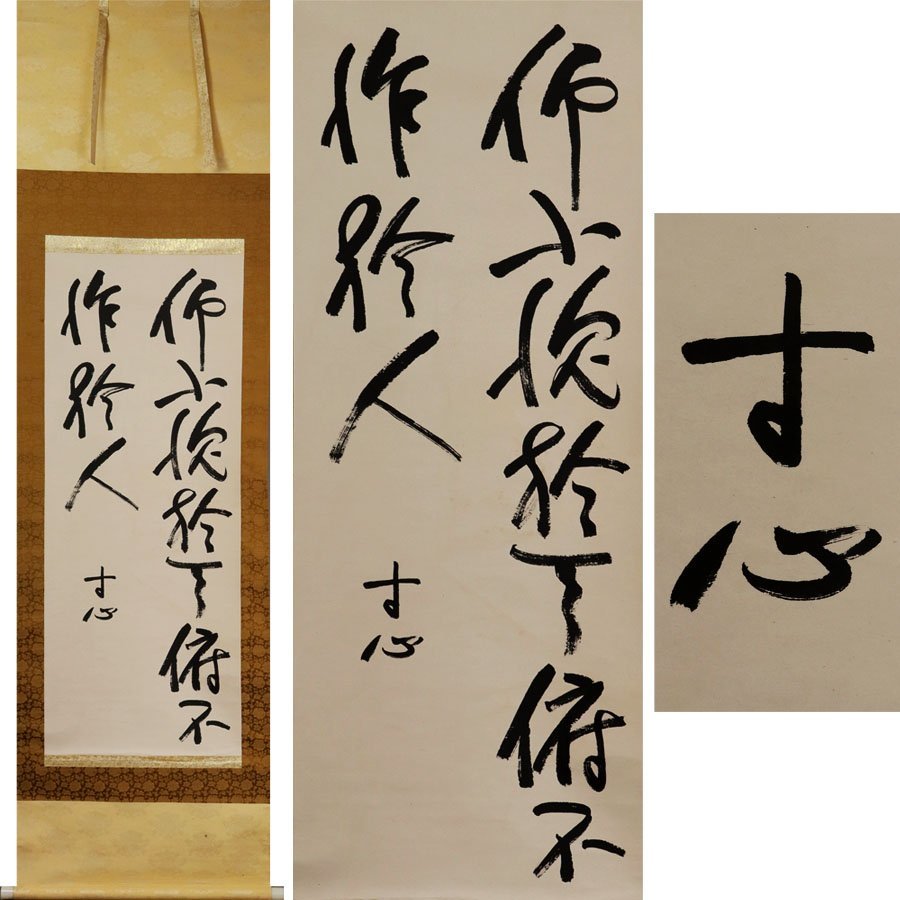 仰不愧於天俯不
怍於人
寸心
仰不愧於天俯不
怍於人
寸心
寸心